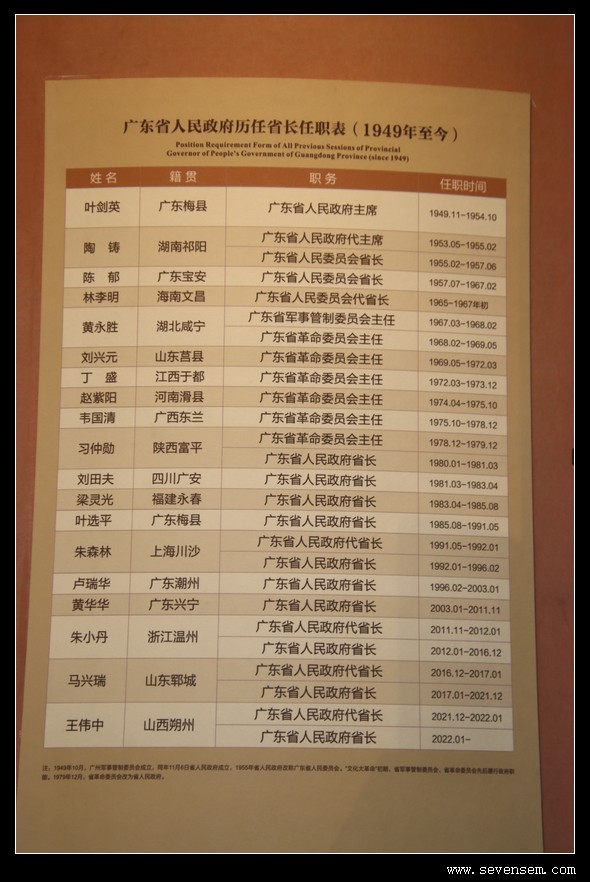 广东省人民政府历任省长任职表（1949年至今）
Position Requirement Form of All Previous Sessions of Provincial
Governor of People's Government of Guangdong Province (since 1949)
姓 名 籍 贯 职 务 任职时间
叶剑英 广东梅县 广东省人民政府主席 1949.11-1954.10
陶 铸 湖南祁阳 广东省人民政府代主席 1953.05-1955.02
广东省人民委员会省长 1955.02-1957.06
陈 郁 广东宝安 广东省人民委员会省长 1957.07-1967.02
林李明 海南文昌 广东省人民委员会代省长 1965-1967年初
黄永胜 湖北咸宁 广东省军事管制委员会主任 1967.03-1968.02
广东省革命委员会主任 1968.02-1969.05
刘兴元 山东莒县 广东省革命委员会主任 1969.05-1972.03
丁 盛 江西于都 广东省革命委员会主任 1972.03-1973.12
赵紫阳 河南滑县 广东省革命委员会主任 1974.04-1975.10
韦国清 广西东兰 广东省革命委员会主任 1975.10-1978.12
习仲勋 陕西富平 广东省革命委员会主任 1978.12-1979.12
广东省人民政府省长 1980.01-1981.03
刘田夫 四川广安 广东省人民政府省长 1981.03-1983.04
梁灵光 福建永春 广东省人民政府省长 1983.04-1985.08
叶选平 广东梅县 广东省人民政府省长 1985.08-1991.05
朱森林 上海川沙 广东省人民政府代省长 1991.05-1992.01
广东省人民政府省长 1992.01-1996.02
卢瑞华 广东潮州 广东省人民政府省长 1996.02-2003.01
黄华华 广东兴宁 广东省人民政府省长 2003.01-2011.11
朱小丹 浙江温州 广东省人民政府代省长 2011.11-2012.01
广东省人民政府省长 2012.01-2016.12
马兴瑞 山东郓城 广东省人民政府代省长 2016.12-2017.01
广东省人民政府省长 2017.01-2021.12
王伟中 山西朔州 广东省人民政府代省长 2021.12-2022.01
广东省人民政府省长 2022.01-
注：1949年10月，广州军事管制委员会成立，同年11月6日省人民政府成立。1955年省人民政府改称广东省人民委员会。“文化大革命”初期，省军事管制委员会、省革命委员会先后履行政府职
能。1979年12月，省革命委员会改为省人民政府。
www.sevensem.com